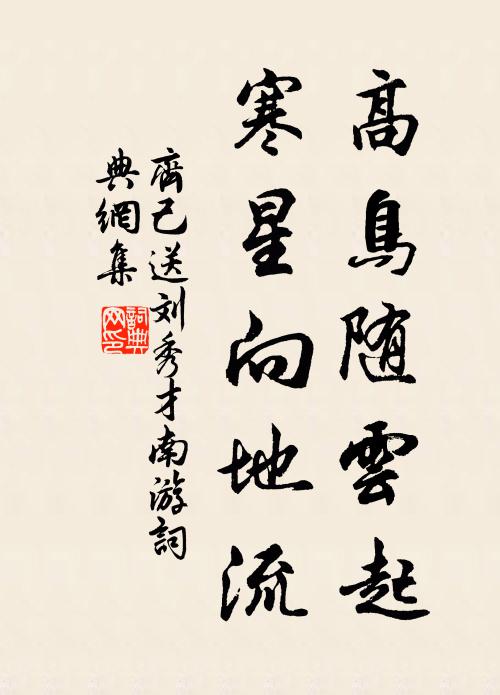 高鳥随雲起
寒星向地流
齊己送刘秀才南游詞
典網集
詞典
网印